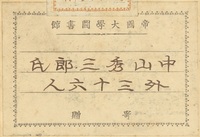 帝國大學圖書館
中山秀三郎氏
外三十六人
寄贈